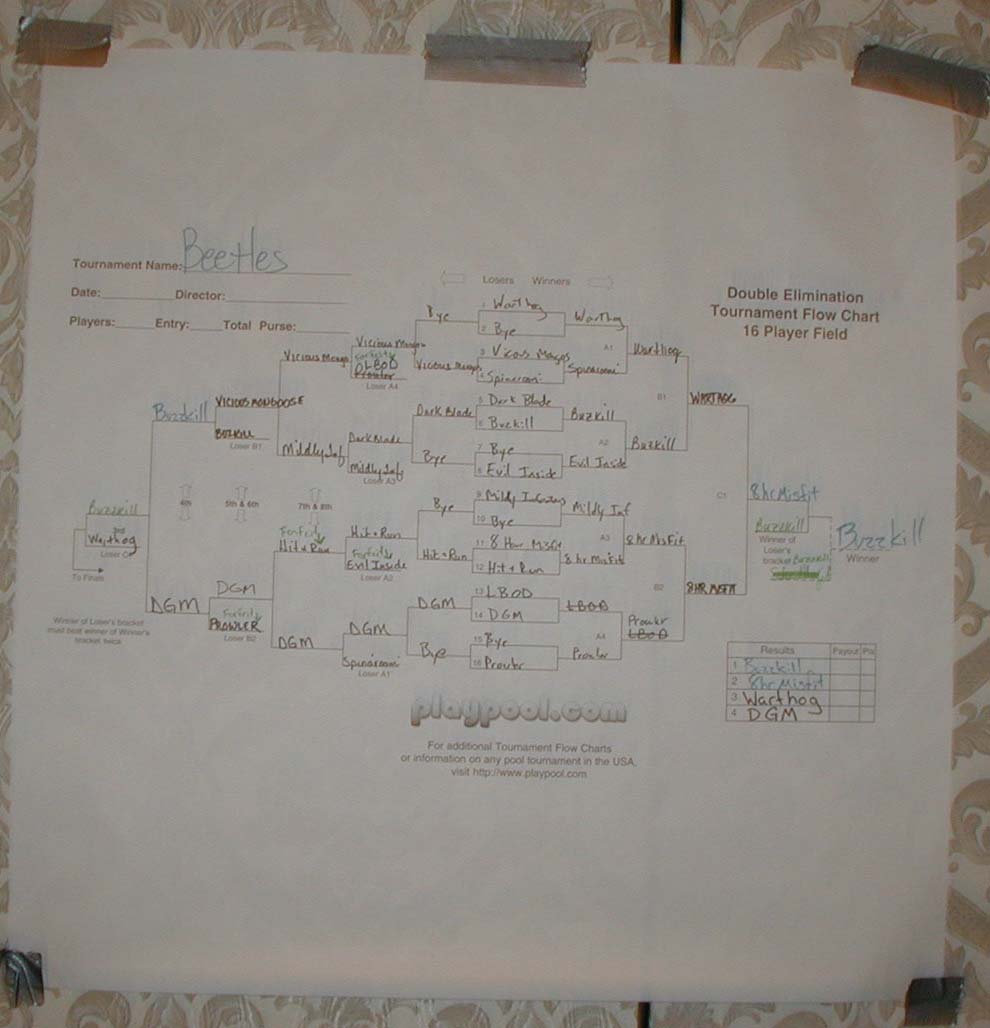 Tournament Name: Beetles
Date: Director:
Players: Entry: Total Purse:
Losers Winners
Double Elimination
Tournament Flow Chart
16 Player Field
1 Warthog
2 Bye
3 Vicous Mangos
4 Spinarooni
5 Dark Blade
6 Buzkill
7 Bye
8 Evil Inside
9 Mildly
10 Bye
11 8 Hour Misfit
12 Hit + Run
13 LBOD
14 DGM
15 Bye
16 Prowler
Warthog
A1
Spinarooni
Buzkill
A2
Evil Inside
Mildly Inf
A3
8 hr Misfit
LBOD
A4
Prowler
Warthog
B1
Buzkill
8hr Misfit
B2
Prowler
LBOD
WARTHOG
C1
8HR MISFIT
8hr Misfit
Buzzkill
Winner of
Loser's
bracket Buzzkill
Buzzkill
Winner
Bye
Vicious Mongo
Dark Blade
Bye
Bye
Hit + Run
DGM
Bye
Vicious Mongo
Forfeit
LBOD
Prowler
Loser A4
Dark Blade
Mildly Inf
Loser A3
Hit + Run
Forfeit
Evil Inside
Loser A2
DGM
Spinarooni
Loser A1
Vicious Mongo
Mildly Inf
Forfeit
Hit + Run
DGM
VICIOUS MONGOOSE
BUZKILL
Loser B1
DGM
Forfeit
PROWLER
Loser B2
4th
5th & 6th
7th & 8th
Buzzkill
DGM
Buzzkill
3rd
Warthog
Loser C1
To Finals
Winner of Loser's bracket
must beat winner of Winner's
bracket twice
Results Payout Pts
1 Buzzkill
2 8hr Misfit
3 Warthog
4 DGM
playpool.com
For additional Tournament Flow Charts
or information on any pool tournament in the USA,
visit http://www.playpool.com